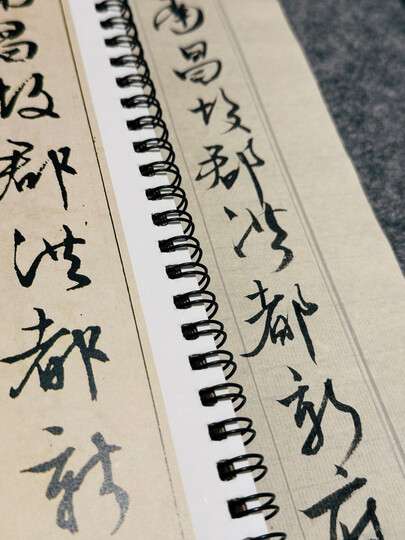 南昌故郡洪都新府
南昌故郡洪都新